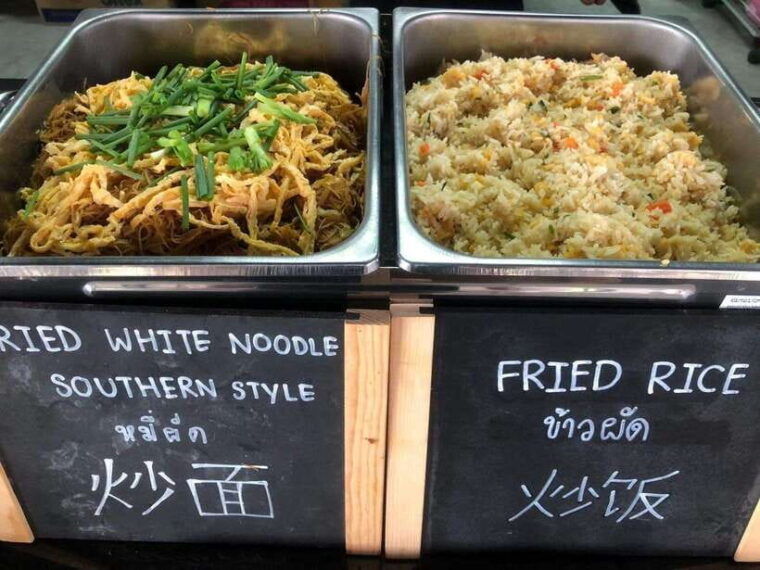 RIED WHITE NOODLE
SOUTHERN STYLE
หมี่ผัด
炒面
FRIED RICE
ข้าวผัด
炒饭